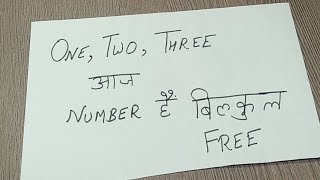 ONE, TWO, THREE
आज
NUMBER है बिलकुल
FREE